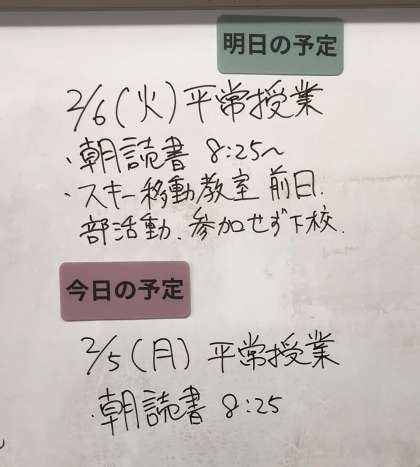 明日の予定
2/6(火)平常授業
・朝読書 8:25~
・スキー移動教室 前日.
部活動、参加せず下校.
今日の予定
2/5(月) 平常授業
・朝読書 8:25